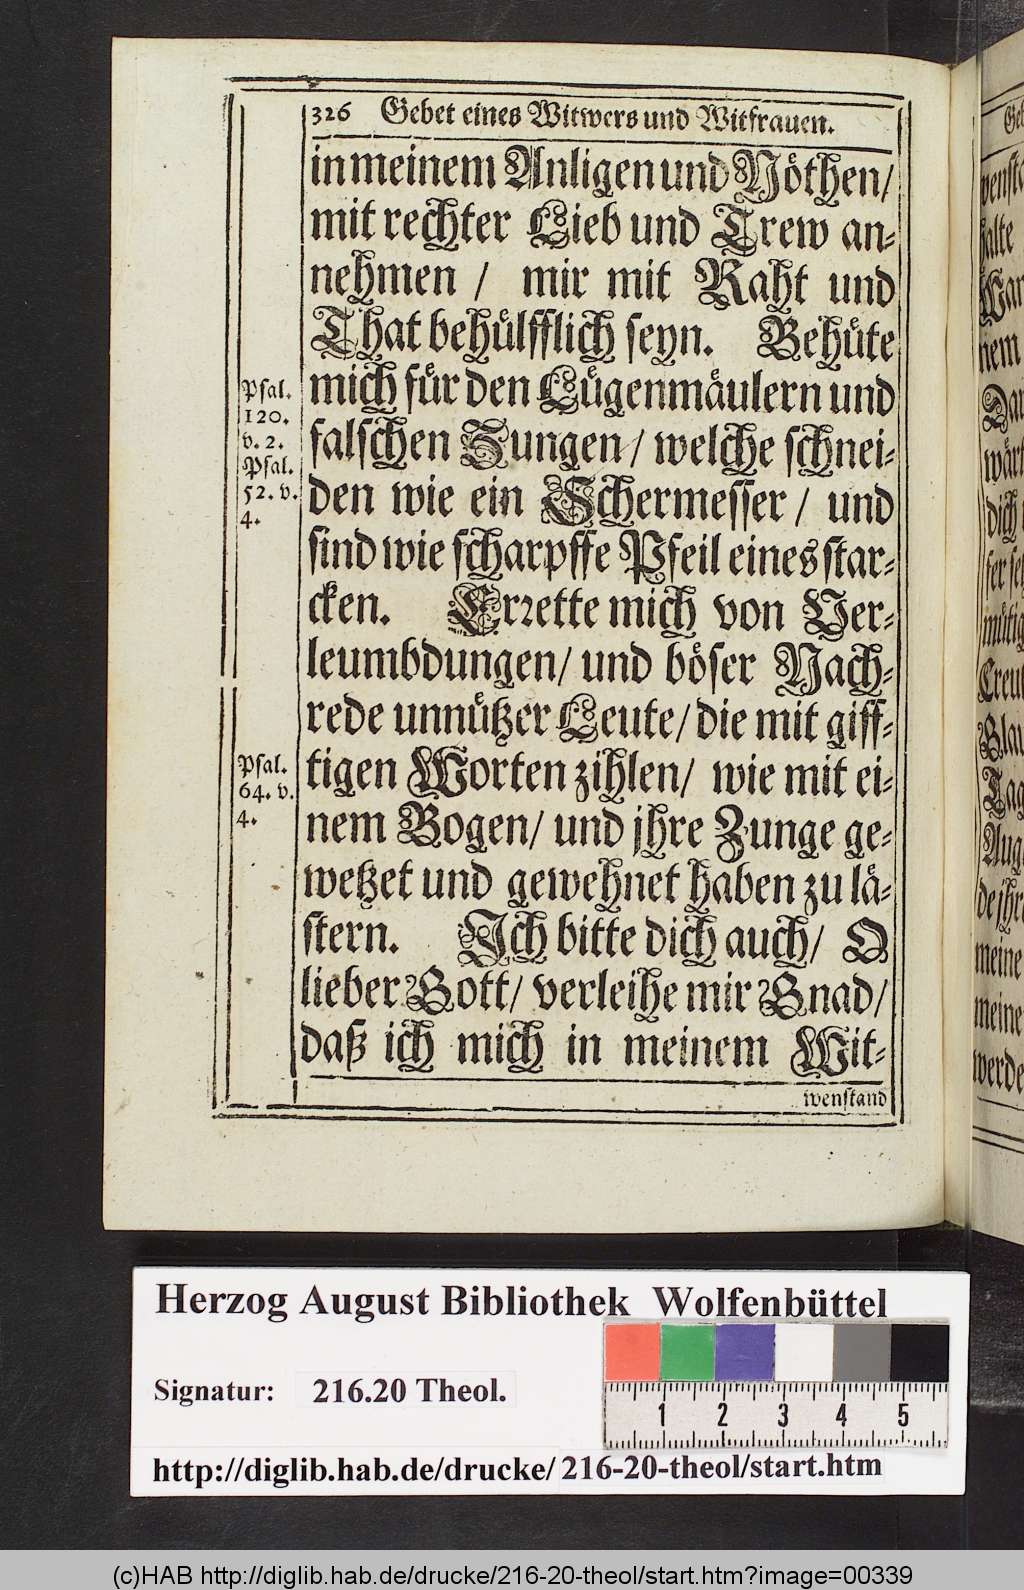 326 Gebet eines Witwers und Witfrauen.
in meinem Anligen und Nöthen/
mit rechter Lieb und Trew an⸗
nehmen / mir mit Raht und
That behülfflich seyn. Behüte
mich für den Lügenmäulern und
falschen Zungen / welche schnei⸗
den wie ein Schermesser / und
sind wie scharpffe Pfeil eines star⸗
cken. Errette mich von Ver⸗
leumbdungen/ und böser Nach⸗
rede unnützer Leute/ die mit giff⸗
tigen Worten zihlen/ wie mit ei⸗
nem Bogen/ und jhre Zunge ge⸗
wetzet und gewehnet haben zu lä⸗
stern. Ich bitte dich auch/ O
lieber Gott/ verleihe mir Gnad/
daß ich mich in meinem Wit⸗
wenstand
Psal.
120.
v. 2.
Psal.
52. v.
4.
Psal.
64. v.
4.
Herzog August Bibliothek Wolfenbüttel
Signatur: 216.20 Theol.
1 2 3 4 5
http://diglib.hab.de/drucke/ 216-20-theol/start.htm
(c)HAB http://diglib.hab.de/drucke/216-20-theol/start.htm?image=00339